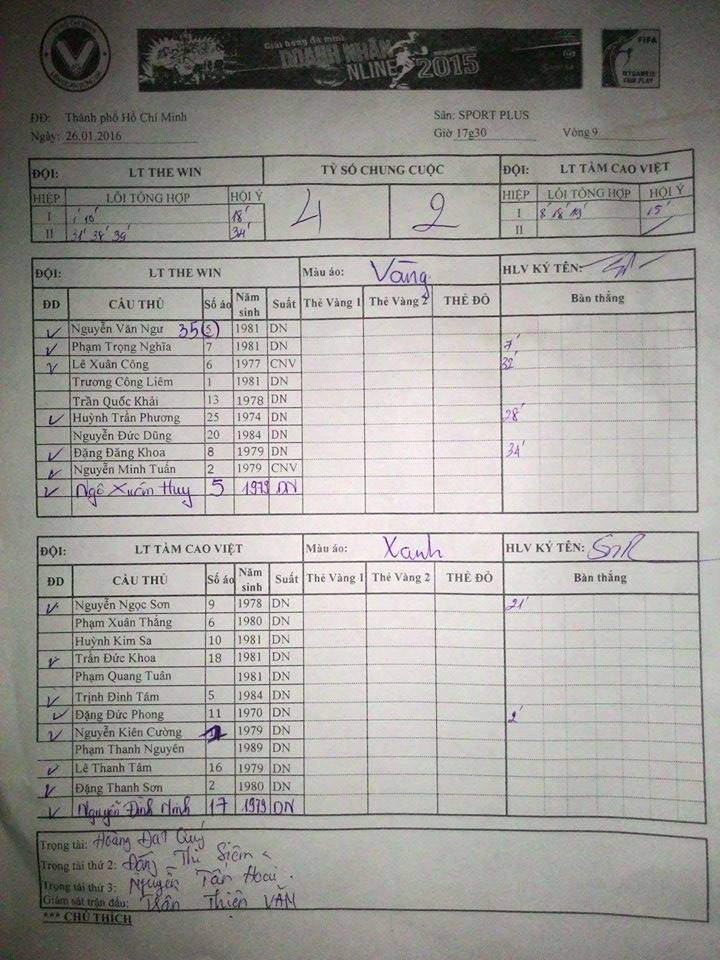 Giải bóng đá mini
DOANH NHÂN
NLINE 2015
FIFA
MY GAME IS
FAIR PLAY
ĐĐ: Thành phố Hồ Chí Minh Sân: SPORT PLUS
Ngày: 26.01.2016 Giờ 17g30 Vòng 9
ĐỘI: LT THE WIN TỶ SỐ CHUNG CUỘC ĐỘI: LT TẦM CAO VIỆT
HIỆP LỖI TỔNG HỢP HỘI Ý 4 2 HIỆP LỖI TỔNG HỢP HỘI Ý
I 1' 10' 18' I 8' 18' 19' 15'
II 31' 38' 39' 34' II
ĐỘI: LT THE WIN Màu áo: Vàng HLV KÝ TÊN:
ĐD CẦU THỦ Số áo Năm sinh Suất Thẻ Vàng 1 Thẻ Vàng 2 THẺ ĐỎ Bàn thắng
Nguyễn Văn Ngư 35 1981 DN
Phạm Trọng Nghĩa 7 1981 DN 7'
Lê Xuân Công 6 1977 CNV 32'
Trương Công Liêm 1 1981 DN
Trần Quốc Khải 13 1978 DN
Huỳnh Trần Phương 25 1974 DN 28'
Nguyễn Đức Dũng 20 1984 DN
Đặng Đăng Khoa 8 1979 DN 34'
Nguyễn Minh Tuấn 2 1979 CNV
Ngô Xuân Huy 5 1979 DN
ĐỘI: LT TẦM CAO VIỆT Màu áo: Xanh HLV KÝ TÊN:
ĐD CẦU THỦ Số áo Năm sinh Suất Thẻ Vàng 1 Thẻ Vàng 2 THẺ ĐỎ Bàn thắng
Nguyễn Ngọc Sơn 9 1978 DN 21'
Phạm Xuân Thắng 6 1980 DN
Huỳnh Kim Sa 10 1981 DN
Trần Đức Khoa 18 1981 DN
Phạm Quang Tuân 1981 DN
Trịnh Đình Tâm 5 1984 DN
Đặng Đức Phong 11 1970 DN 2'
Nguyễn Kiên Cường 1979 DN
Phạm Thanh Nguyên 1989 DN
Lê Thanh Tâm 16 1979 DN
Đặng Thanh Sơn 2 1980 DN
Nguyễn Đình Minh 17 1979 DN
Trọng tài: Hoàng Đạt Quý
Trọng tài thứ 2: Đặng Thị Siêm
Trọng tài thứ 3: Nguyễn Tấn Hoài
Giám sát trận đấu: Trần Thiện VĂN
*** CHÚ THÍCH